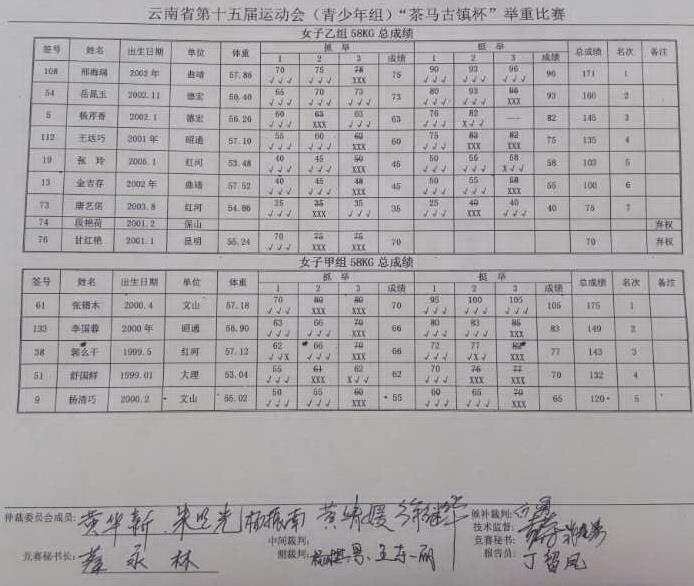 云南省第十五届运动会（青少年组）“茶马古镇杯”举重比赛
女子乙组 58KG 总成绩
签号 姓名 出生日期 单位 体重 抓 举 成绩 挺 举 成绩 总成绩 名次 备注
1 2 3 1 2 3
108 邢海瑞 2002 年 曲靖 57.86 70 75 78 75 90 93 96 96 171 1
√√√ √√√ XXX √√√ √√√ √√√
54 岳晁玉 2002.11 德宏 56.40 65 70 73 73 80 93 96 93 166 2
√√√ √√√ √√√ √√√ √√√ XXX
5 杨芹香 2002.1 德宏 56.26 60 63 63 63 76 82 — 82 145 3
√√√ XXX √√√ √√√ X√√
112 王远巧 2001 年 昭通 57.10 55 60 62 60 75 82 82 75 135 4
√√√ √√√ XXX √√√ XXX XXX
19 张 玲 2005.1 红河 53.48 40 45 50 45 50 55 58 58 103 5
√√√ √√√ XXX √√√ √√√ X√√
13 金吉存 2002 年 曲靖 57.52 40 45 48 45 50 55 58 55 100 6
√√√ √√√ XXX √√√ √√√ XXX
73 唐艺偌 2003.8 红河 54.86 25 35 35 35 25 40 40 40 75 7
√√√ XXX √√√ √√√ XXX √√√
74 段艳荷 2001.2 保山 弃权
76 甘红艳 2001.1 昆明 55.24 70 75 75 70 70 弃权
√√√ XXX XXX
女子甲组 58KG 总成绩
签号 姓名 出生日期 单位 体重 抓 举 成绩 挺 举 成绩 总成绩 名次 备注
1 2 3 1 2 3
61 张锴木 2000.4 文山 57.18 70 80 80 70 95 100 105 105 175 1
√√√ XXX XXX √√√ √√√ √√√
133 李国蓉 2000 年 昭通 56.90 63 66 70 66 80 83 85 83 149 2
√√√ √√√ XXX √√√ √√√ XXX
38 郭么干 1999.5 红河 57.12 62 66 70 66 72 77 82 77 143 3
√√X √√√ XXX √√√ √X√ XXX
51 舒国鲜 1999.01 大理 53.04 55 61 62 62 70 76 77 70 132 4
√√√ XXX X√√ √√√ XXX XXX
9 杨清巧 2000.2 文山 55.02 50 55 60 55 60 65 70 65 120 5
√√√ √√√ XXX √√√ √√√ XXX
仲裁委员会成员: 黄华新 杨振南 黄绮媛 候补裁判:
技术监督:
中间裁判: 竞赛秘书:
竞赛秘书长: 永林 侧裁判: 报告员: 丁智凤